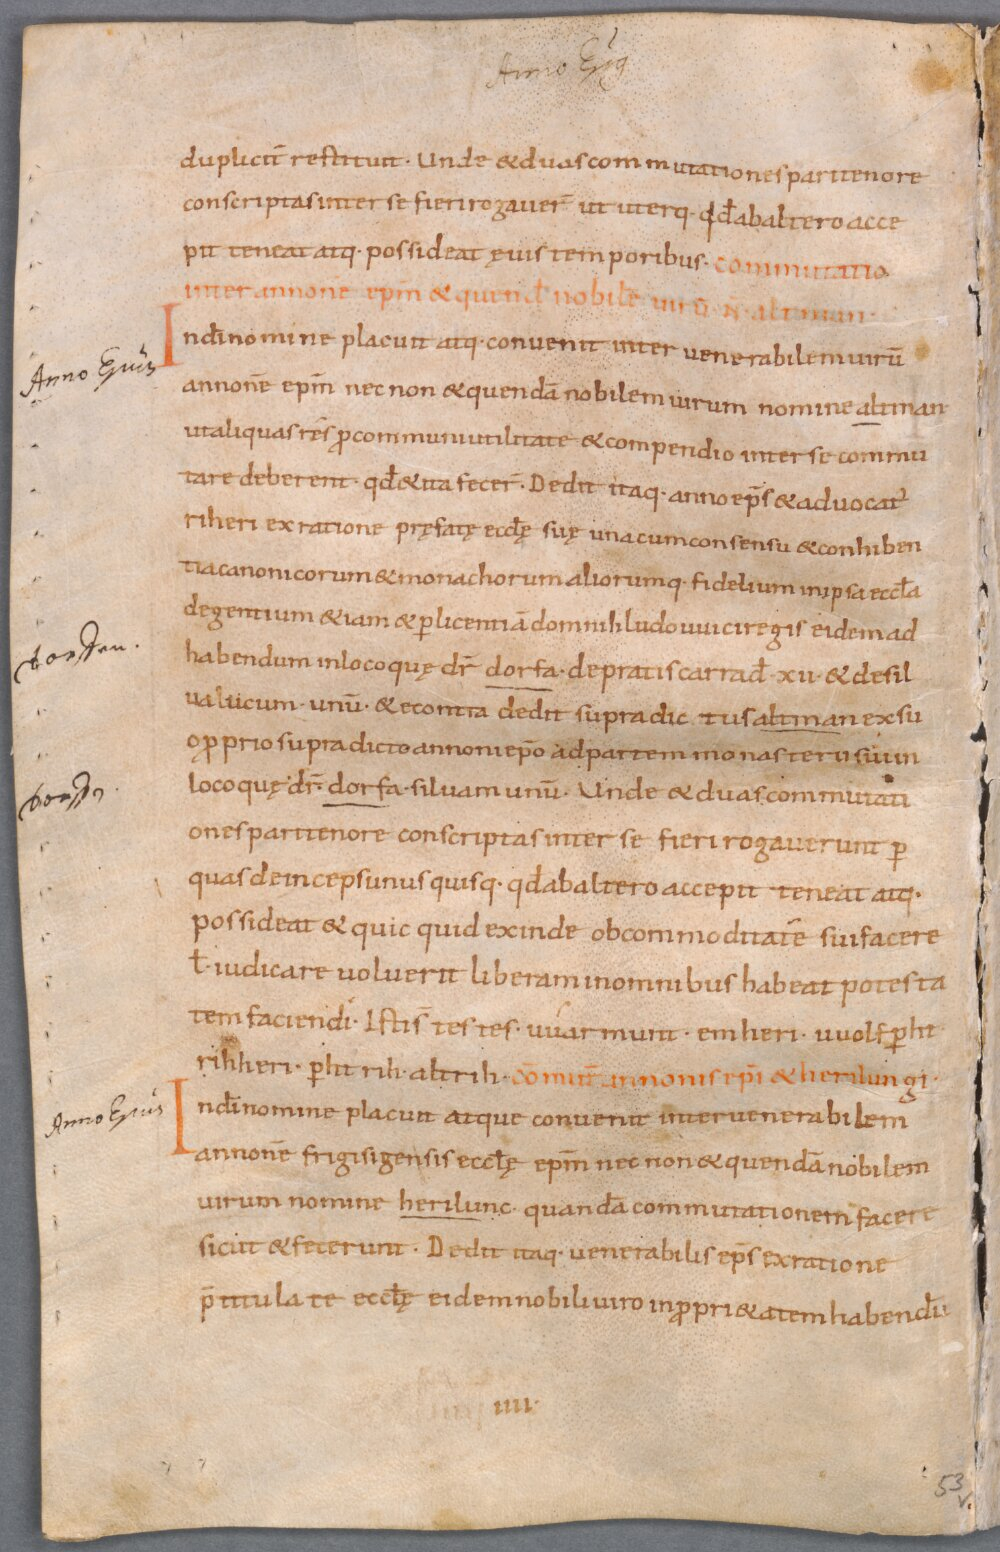 Anno Ep̄s
dupliciť restituit · Unde & duas commutationes pari tenore
conscriptas inter se fieri rogaver̄ ut uterq· qd̄ ab altero acce
pit teneat atq· possideat ęuis temporibus· commutatio
inter annonē ep̄m & quend̄ nobilē virū · N̄ · altman ·
Anno Ep̄us
In dī nomine placuit atq· convenit inter venerabilem uirū
annonē ep̄m nec non & quendā nobilem uirum nomine altman
ut aliquas res p̄ communi utilitate & compendio inter se commu
tare deberent· qd̄ & ita fecer̄· Dedit itaq· anno ep̄s & advocať
riheri ex ratione pręfatę eccłę suę una cum consensu & conhiben
tia canonicorum & monachorum aliorumq· fidelium in ipsa eccła
degentium &iam & p licentiā domni hludouuici regis eidem ad
dorffen.
habendum in loco quę dr̄ dorfa· de pratis carrad̄· xv· & de sil
ua iucum· unū· & econtra dedit supradic tus altman ex su
o proprio supradicto annoni ep̄o ad partem monasterii sui in
dorff.
loco quę dr̄· dorfa· silvam unū· Unde & duas commutati
ones pari tenore conscriptas inter se fieri rogaverunt p
quas deinceps unus quisq· qd̄ ab altero accepit teneat atq·
possideat & quic quid exinde ob commoditatē sui facere
ł· iudicare voluerit liberam in omnibus habeat potesta
tem faciendi· Istis̄ testes· uuarmunt· emheri· uuolfp̱ht·
rihheri· p̱ht rih· altrih· cōmuť annonis ep̄i & herilungi·
Anno Ep̄us
In dī nomine placuit atque convenit inter venerabilem
annonē frigisigensis eccłę ep̄m nec non & quendā nobilem
virum nomine herilunc· quandā commutationem facere
sicut & fecerunt· Dedit itaq· venerabilis ep̄s ex ratione
p̄titulate eccłę eidem nobili viro in propri&atem habendū
IIII·
53
v.